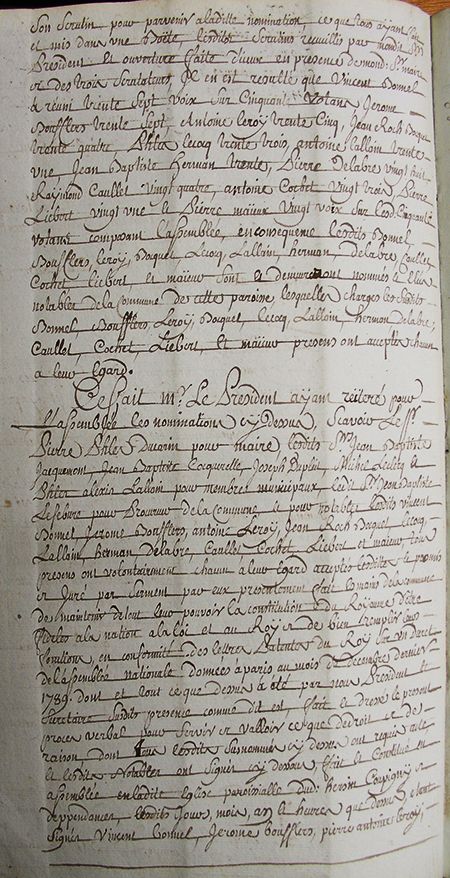 Son Scrutin pour parvenir a ladite nomination ce que tous ayant
et mis dans une Boëte, lesdits Scrutins recueillis par mondit Sr
President et ouverture faite d'iceux en presence de mond: Sr maire
et des trois Scrutateurs, Il en est resulté que Vincent Bonnel
a reuni trente Sept voix Sur Cinquante Votans, Jerome
Boufflers trente Sept, Antoine leroy trente Cinq, Jean Roch Boquet
trente quatre, Phles lecocq trente trois, antoine lallain trente
une, Jean Baptiste herman trente, Pierre Delabre vingt huit
Raymond Caullet vingt quatre, antoine Cochet vingt trois, Pierre
Liebert vingt une et Pierre maïeux Vingt voix Sur lesd. Cinquante
Votans composant l'assemblée, en consequence lesdits Bonnel,
Boufflers, leroy, Boquet, Lecocq, Lallain, herman, Delabre, Caullet
Cochet, Liebert, et maïeux Sont et demeurent nommés et élus
notables de la Commune de cette paroisse, lesquelles charges lesdits
Bonnel, Boufflers, Leroy, Boquet, lecocq, Lallain, herman, delabre,
Caullet, Cochet, Liebert, et maïeux presens ont accepter chacun
a leur Egard.
Ce fait mr. Le President ayant réiteré pour
l'assemblée les nominations cy dessus, Scavoir Le Sr.
Pierre Phles Ducarin pour maire, lesdits Srs Jean Baptiste
Jacquemont, Jean Baptiste Locquerelle, Joseph Dupuis, Michel Leclercq et
Phles alexis Lallain pour membres municipaux, ledit Sr Jean Baptiste
Lefebvre pour Procureur de la Commune, et pour notables lesdits vincent
Bonnel, Jerome Boufflers, antoine Leroy, Jean Roch Boquet, lecocq,
Lallain, Herman, Delabre, Caullet, Cochet, Liebert et maïeux tous
presens ont volontairement chacun a leur Egard accepter lesdittes et promis
et Juré par Serment par eux presentement fait es mains de la commune
de maintenir de tout leur pouvoir la constitution du Royaume d'être
fideles a la nation a la loi et au Roy et de bien remplir leurs
fonctions, en conformité des lettres Patentes du Roy Sur un decret
de l'assemblée nationale données a paris au mois de Decembre dernier
1789. dont et tout ce que dessus a été par nous President et
Secretaire Susdits presence comme dit est, fait et dressé le present
procès verbal pour Servir et Valloir ce que de droit et de
raison dont tous lesdits Susnommés cy dessus ont requis acte
et lesdits Notables ont Signés cy dessous, fait et Constitué en
assemblée en ladite Eglise paroissialle dud: herain Coupigny et
deppendances lesdits Jour, mois, an et heures que dessus, etant
Signés Vincent Bonnel, Jerome boufflers, pierre antoine leroy,